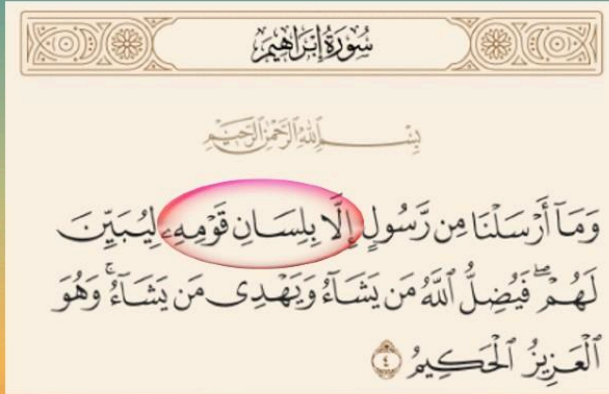 سُورَةُ إِبْرَاهِيمَ
بِسْمِ ٱللَّهِ ٱلرَّحْمَٰنِ ٱلرَّحِيمِ
وَمَآ أَرْسَلْنَا مِن رَّسُولٍ إِلَّا بِلِسَانِ قَوْمِهِۦ لِيُبَيِّنَ
لَهُمْۖ فَيُضِلُّ ٱللَّهُ مَن يَشَآءُ وَيَهْدِى مَن يَشَآءُۚ وَهُوَ
ٱلْعَزِيزُ ٱلْحَكِيمُ ٤